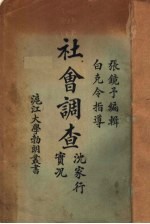 張鏡予編輯
白克令指導
社會調查
沈家行
實况
滬江大學勃朗叢書